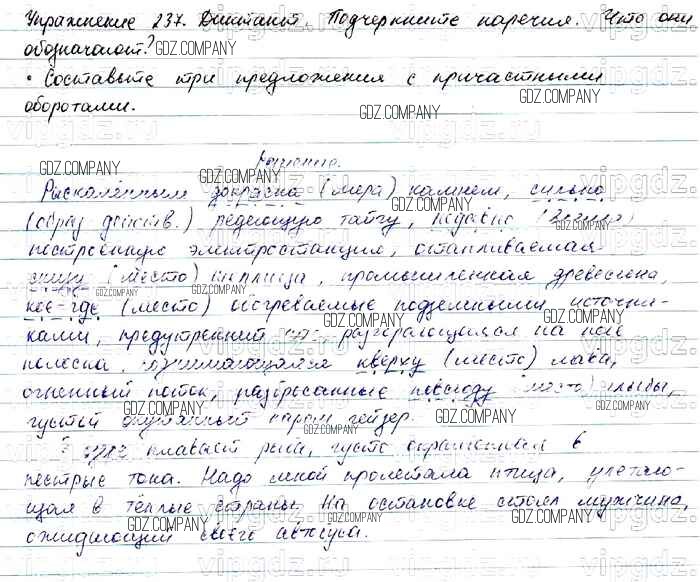 Упражнение 237. Диктант. Подчеркните наречия. Что они
обозначают?
• Составьте три предложения с причастными
оборотами.
Решение.
Раскалённым докрасна (мера) камнем, сильно
(образ действ.) редеющую тайгу, недавно
построенную электростанцию, отапливаемая
снизу (место) теплица, промышленная древесина,
кое-где (место) обогреваемые подземными источни-
ками, предутренний разгорающаяся на небе
полоска, поднимающаяся кверху (место) лава,
огненный поток, разбросанные повсюду (место) глыбы,
густой окутанный паром гейзер.
плавает рыба, густо окрашенная в
пестрые тона. Надо мной пролетала птица, улетаю-
щая в тёплые страны. На остановке стоял мужчина,
ожидающий своего автобуса.